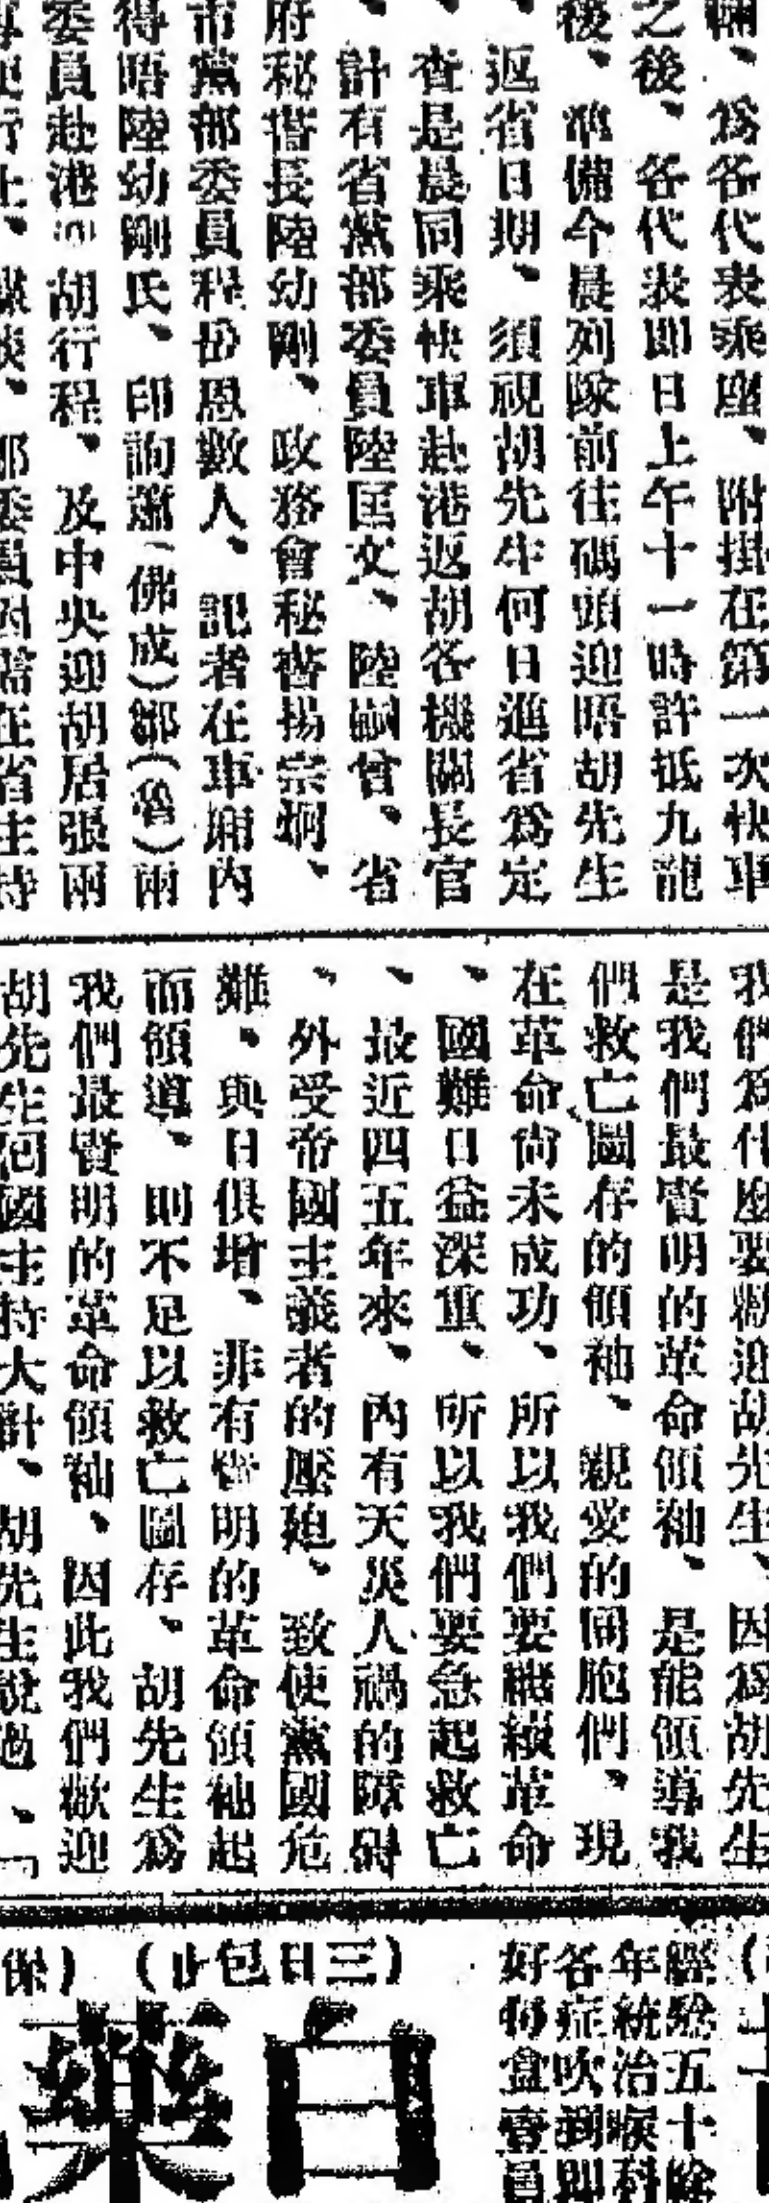 輛、爲各代表乘座、附掛在第一次快車
之後、各代表即日上午十一時許抵九龍
後、準備今晨列隊前往碼頭迎晤胡先生
、返省日期、須視胡先生何日進省爲定
、查是晨同乘快車赴港返胡各機關長官
、計有省黨部委員陸匡文、陸嗣曾、省
府秘書長陸幼剛、政務會秘書楊宗炯、
市黨部委員程份恩數人、記者在車廂內
得晤陸幼剛氏、印詢蕭(佛成)鄒(魯)兩
委員赴港迎胡行程、及中央迎胡居張兩
我們爲什麼要歡迎胡先生、因爲胡先生
是我們最賢明的革命領袖、是能領導我
們救亡圖存的領袖、親愛的同胞們、現
在革命尚未成功、所以我們要繼續革命
、國難日益深重、所以我們要急起救亡
、最近四五年來、內有天災人禍的障碍
、外受帝國主義者的壓廹、致使黨國危
難、與日俱增、非有賢明的革命領袖起
而領導、則不足以救亡圖存、胡先生爲
我們最賢明的革命領袖、因此我們歡迎
胡先生囘國主持大計、胡先生說過、「
經驗五十餘
年統治喉科
各症吹到即
好每盒壹員
(三日包止)
白藥